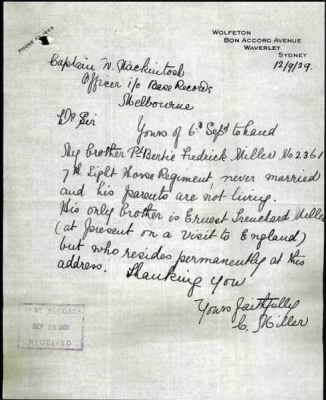 PHONE
WOLFETON
BON ACCORD AVENUE
WAVERLEY
SYDNEY
12/9/29.
Captain N. Mackintosh
Officer i/c Base Records
Melbourne
Dr Sir
Yours of 6th Sept to hand
My Brother Pte Bertie Fedrick Miller No 2361
7th Light Horse Regiment, never married
and his parents are not living.
His only brother is Ernest Trenchard Miller
(at present on a visit to England)
but who resides permanently at this
address. Thanking you
Yours faithfully
C. Miller
BASE RECORDS
SEP
RECEIVED